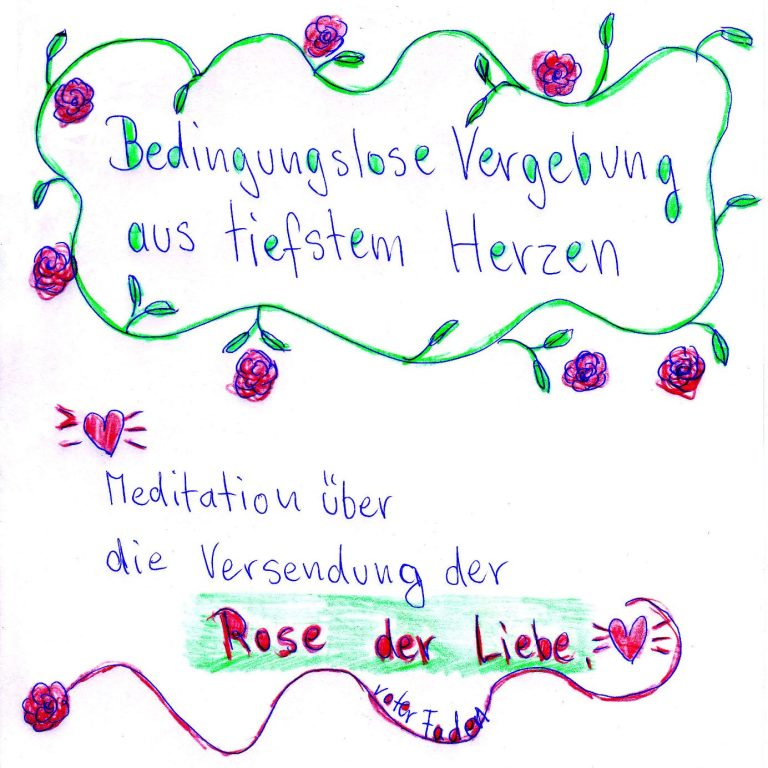 Bedingungslose Vergebung
aus tiefstem Herzen
Meditation über
die Versendung der
Rose der Liebe.
roter Faden